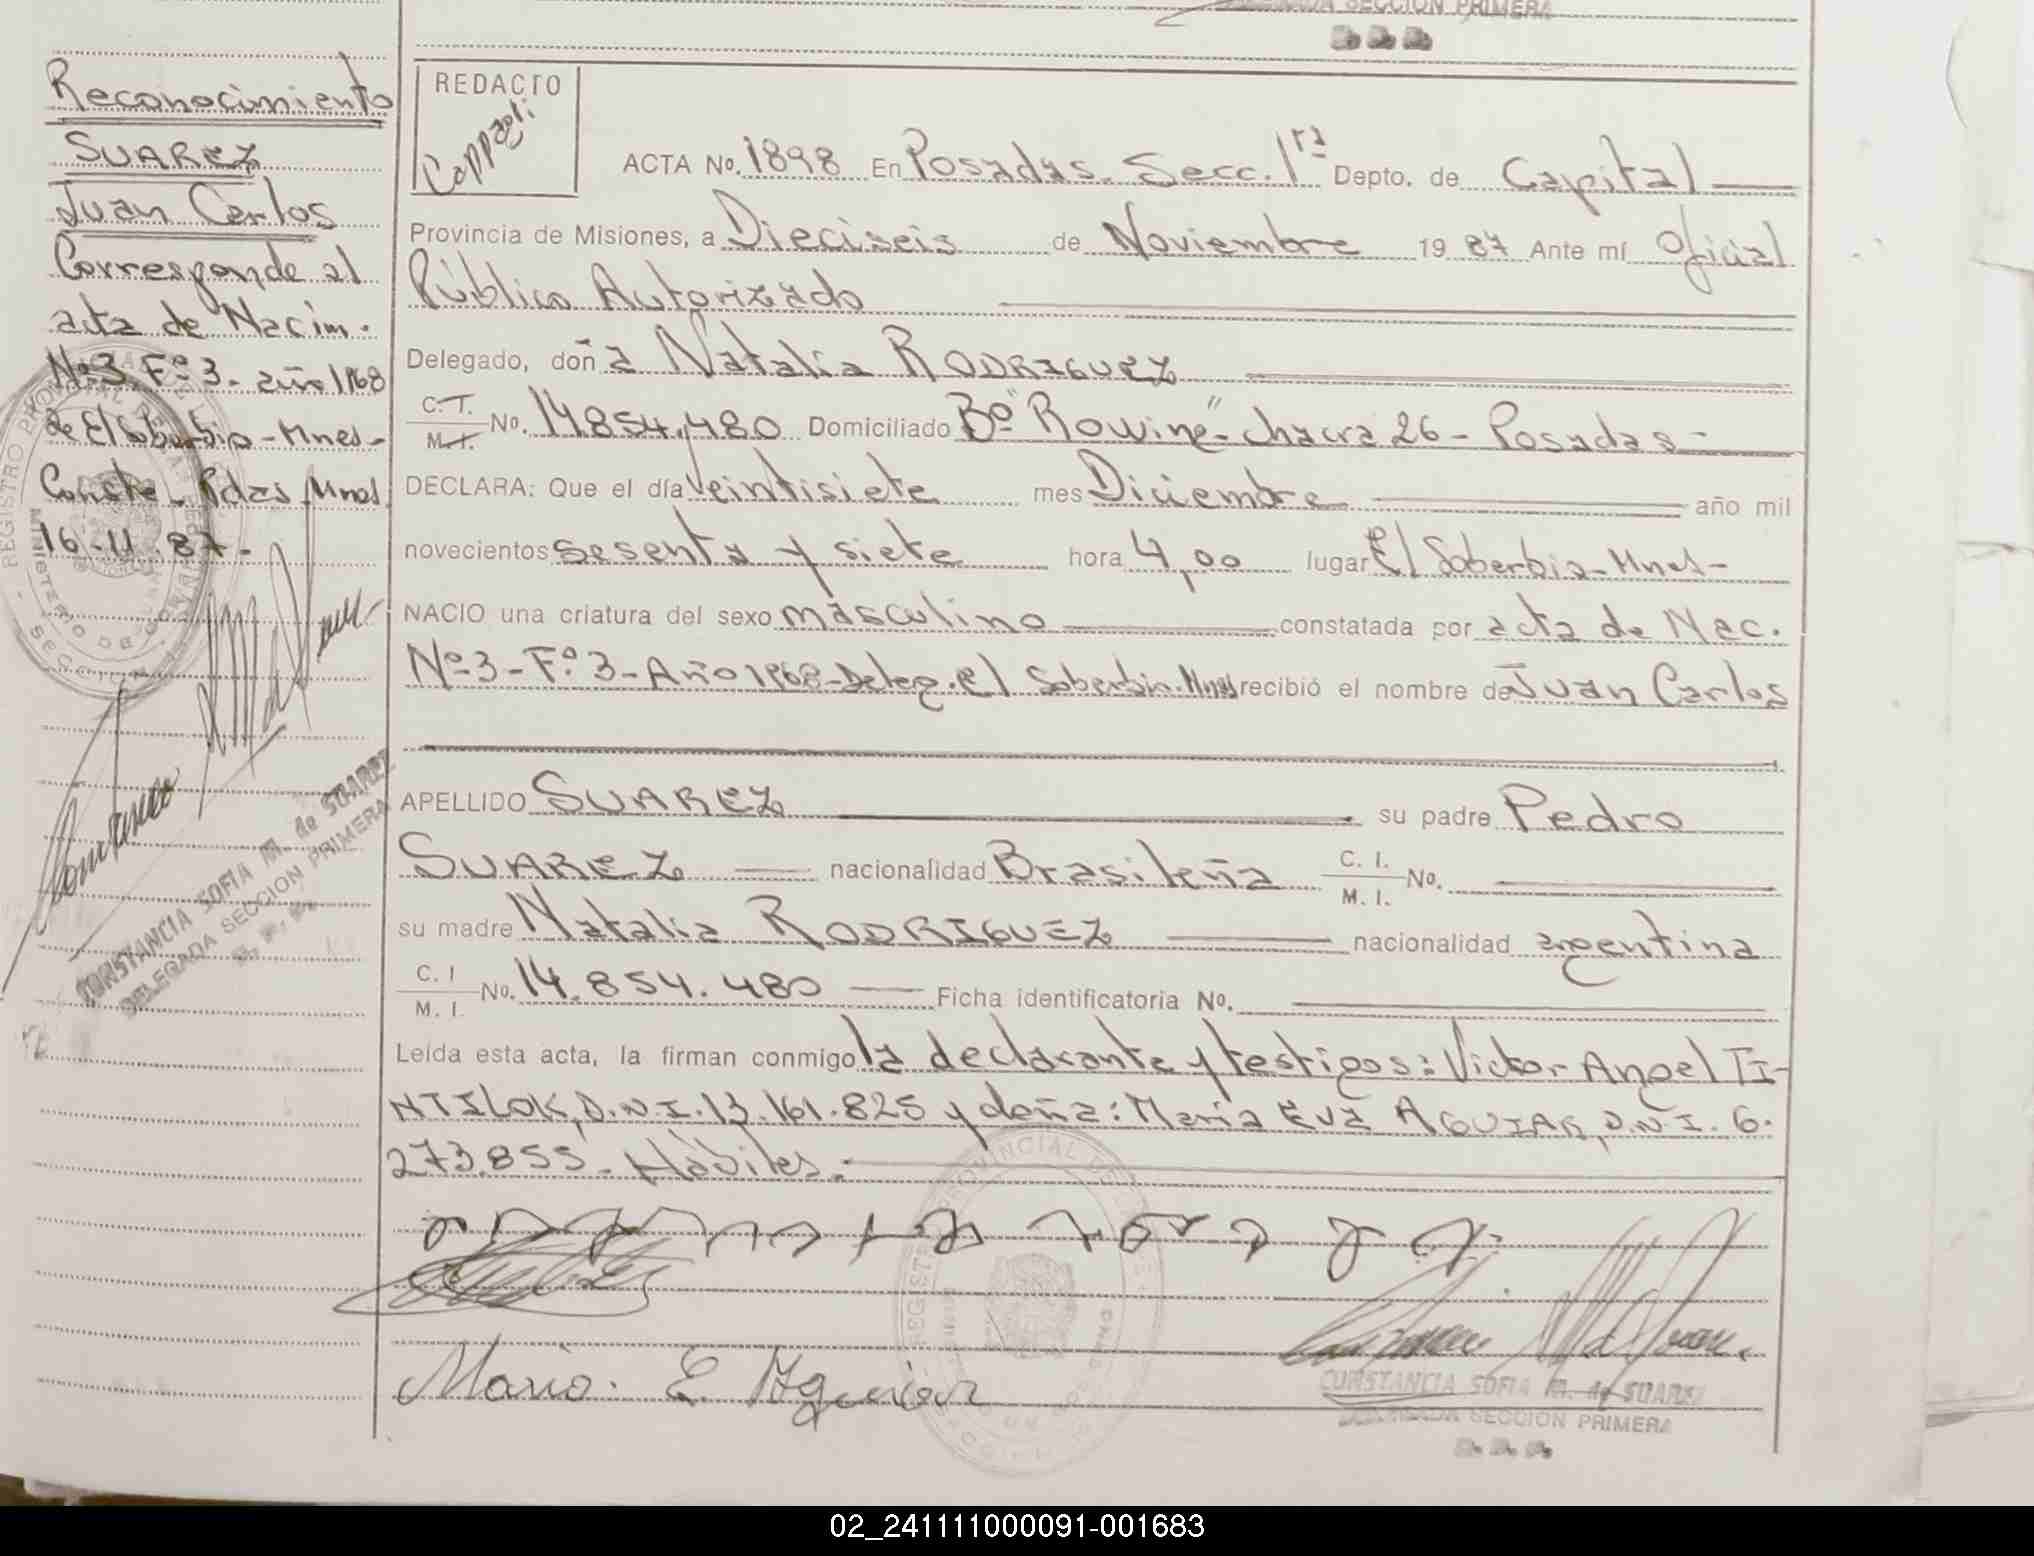 SECCION PRIMERA
Reconocimiento
SUAREZ
Juan Carlos
Corresponde al
acta de Nacim.
Nº3 Fº3- año 1968
de El Soberbio-Mnes-
Conste-Pdas Mnes
16-11-87-
CONSTANCIA SOFIA M. de SUAREZ
DELEGADA SECCION PRIMERA
REDACTO
Coppzoli
ACTA No. 1898 En Posadas. Secc. 1ra Depto. de Capital
Provincia de Misiones, a Dieciseis de Noviembre 19 87 Ante mí Oficial
Público Autorizado
Delegado, doña Natalia RODRIGUEZ
C.I. M.I. No. 14.854.480 Domiciliado Bº "Rowine"-chacra 26- Posadas-
DECLARA: Que el día Veintisiete mes Diciembre año mil
novecientos sesenta y siete hora 4,00 lugar El Soberbio-Mnes-
NACIO una criatura del sexo masculino constatada por acta de Nac.
Nº3-Fº3-Año 1968-Deleg. El Soberbio-Mnes recibió el nombre de Juan Carlos
APELLIDO SUAREZ su padre Pedro
SUAREZ nacionalidad Brasileña C. I. M. I. No.
su madre Natalia RODRIGUEZ nacionalidad argentina
C. I M. I. No. 14.854.480 Ficha identificatoria No.
Leída esta acta, la firman conmigo la declarante y testigos: Victor Angel TI-
NTILOK, D.N.I. 13.161.825 y doña: Maria Eva AGUIAR, D.N.I. 6.
273.855- Hábiles.-
Maria E. Aguiar
REGISTRO PROVINCIAL DE
CONSTANCIA SOFIA M. de SUAREZ
DELEGADA SECCION PRIMERA
02_241111000091-001683